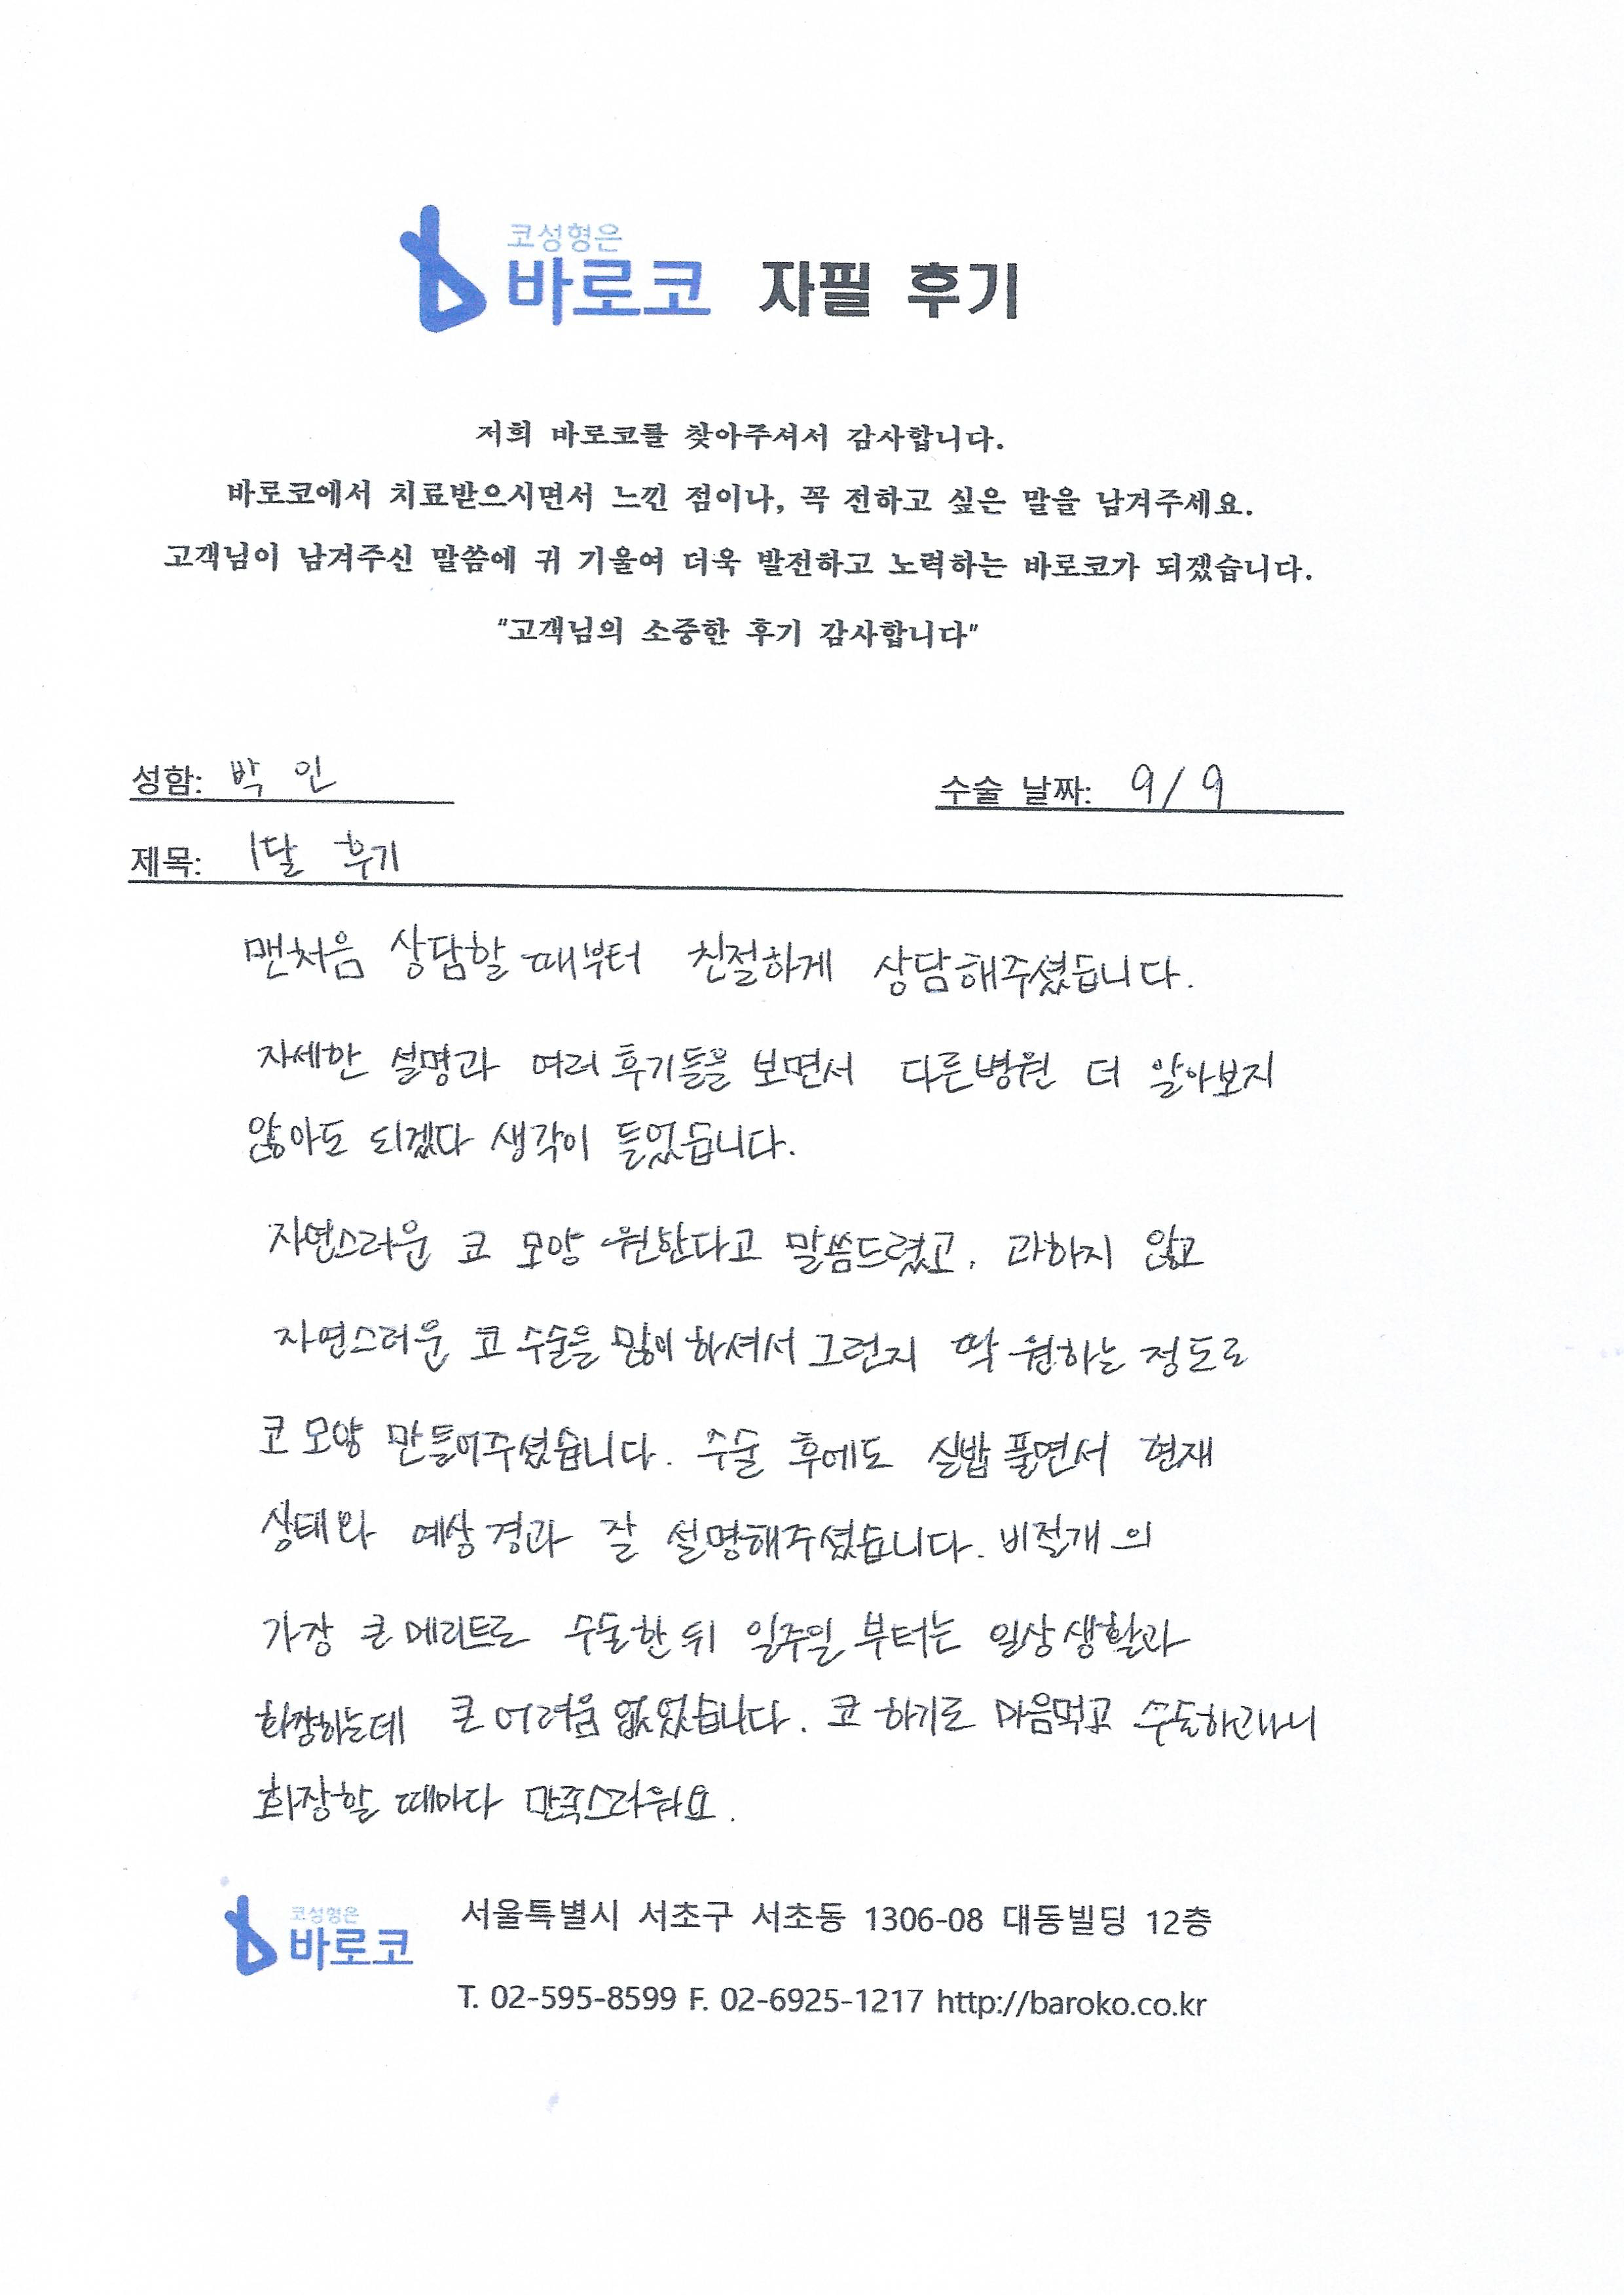 코성형은
바로코 자필 후기
저희 바로코를 찾아주셔서 감사합니다.
바로코에서 치료받으시면서 느낀 점이나, 꼭 전하고 싶은 말을 남겨주세요.
고객님이 남겨주신 말씀에 귀 기울여 더욱 발전하고 노력하는 바로코가 되겠습니다.
"고객님의 소중한 후기 감사합니다"
성함: 박 인 수술 날짜: 9/9
제목: 1달 후기
맨처음 상담할 때부터 친절하게 상담해주셨습니다.
자세한 설명과 여러 후기들을 보면서 다른병원 더 알아보지
않아도 되겠다 생각이 들었습니다.
자연스러운 코 모양 원한다고 말씀드렸고, 과하지 않고
자연스러운 코 수술을 많이 하셔서 그런지 딱 원하는 정도로
코 모양 만들어주셨습니다. 수술 후에도 실밥 풀면서 현재
상태와 예상 경과 잘 설명해주셨습니다. 비절개의
가장 큰 메리트로 수술한 뒤 일주일 부터는 일상생활과
화장하는데 큰 어려움 없었습니다. 코 하기로 마음먹고 수술하고나니
화장할 때마다 만족스러워요.
코성형은
바로코
서울특별시 서초구 서초동 1306-08 대동빌딩 12층
T. 02-595-8599 F. 02-6925-1217 http://baroko.co.kr